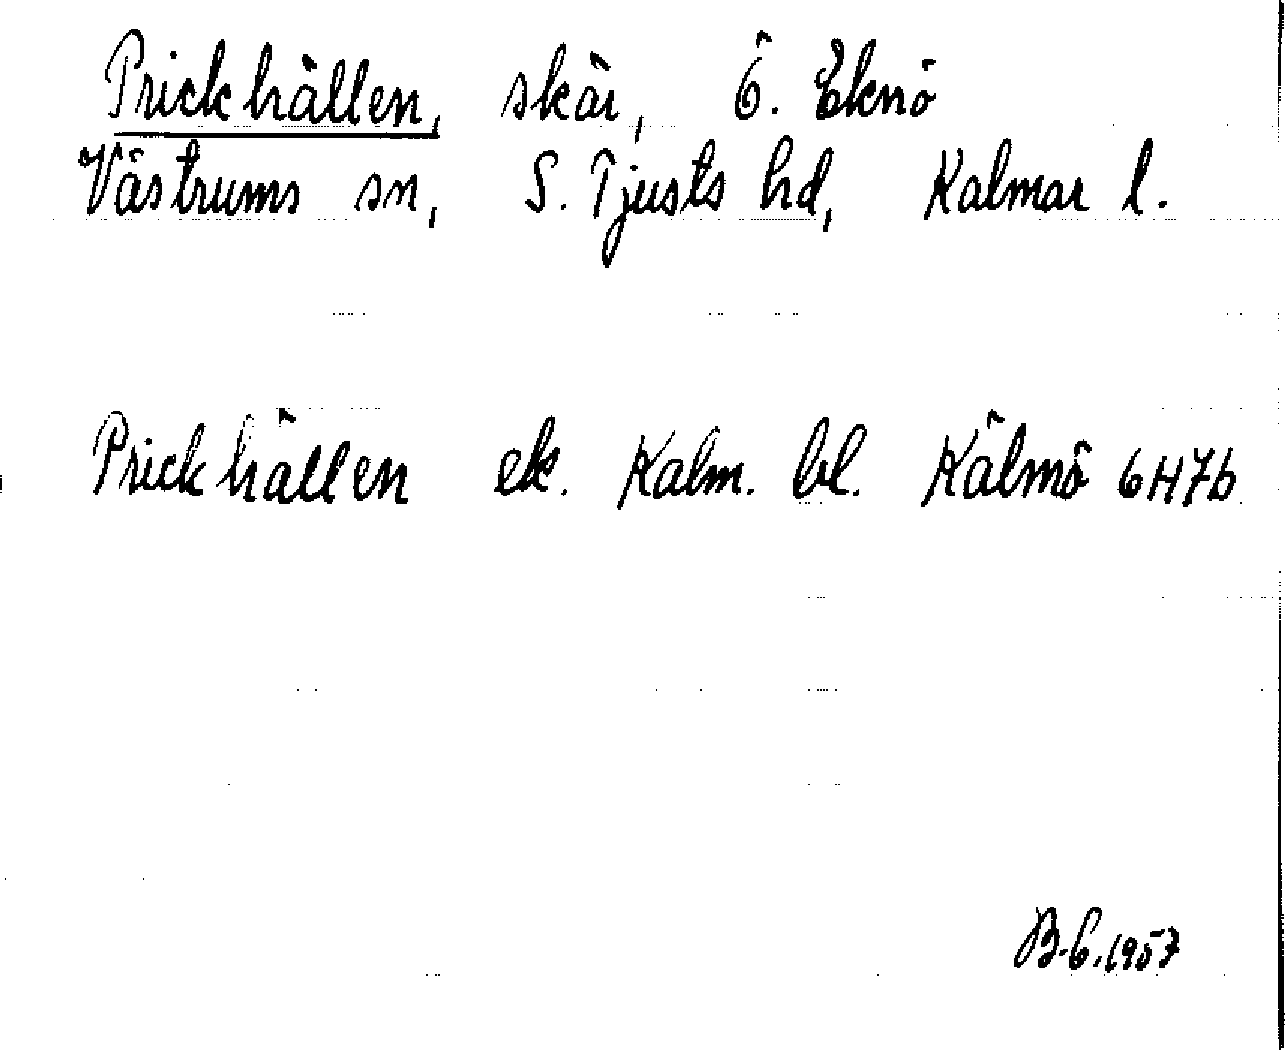 Prickhällen, skär, Ö. Eknö
Västrums sn, S. Tjusts hd, Kalmar l.
Prickhällen ek. Kalm. bl. Kälmö 6H7b
B.E. 1957